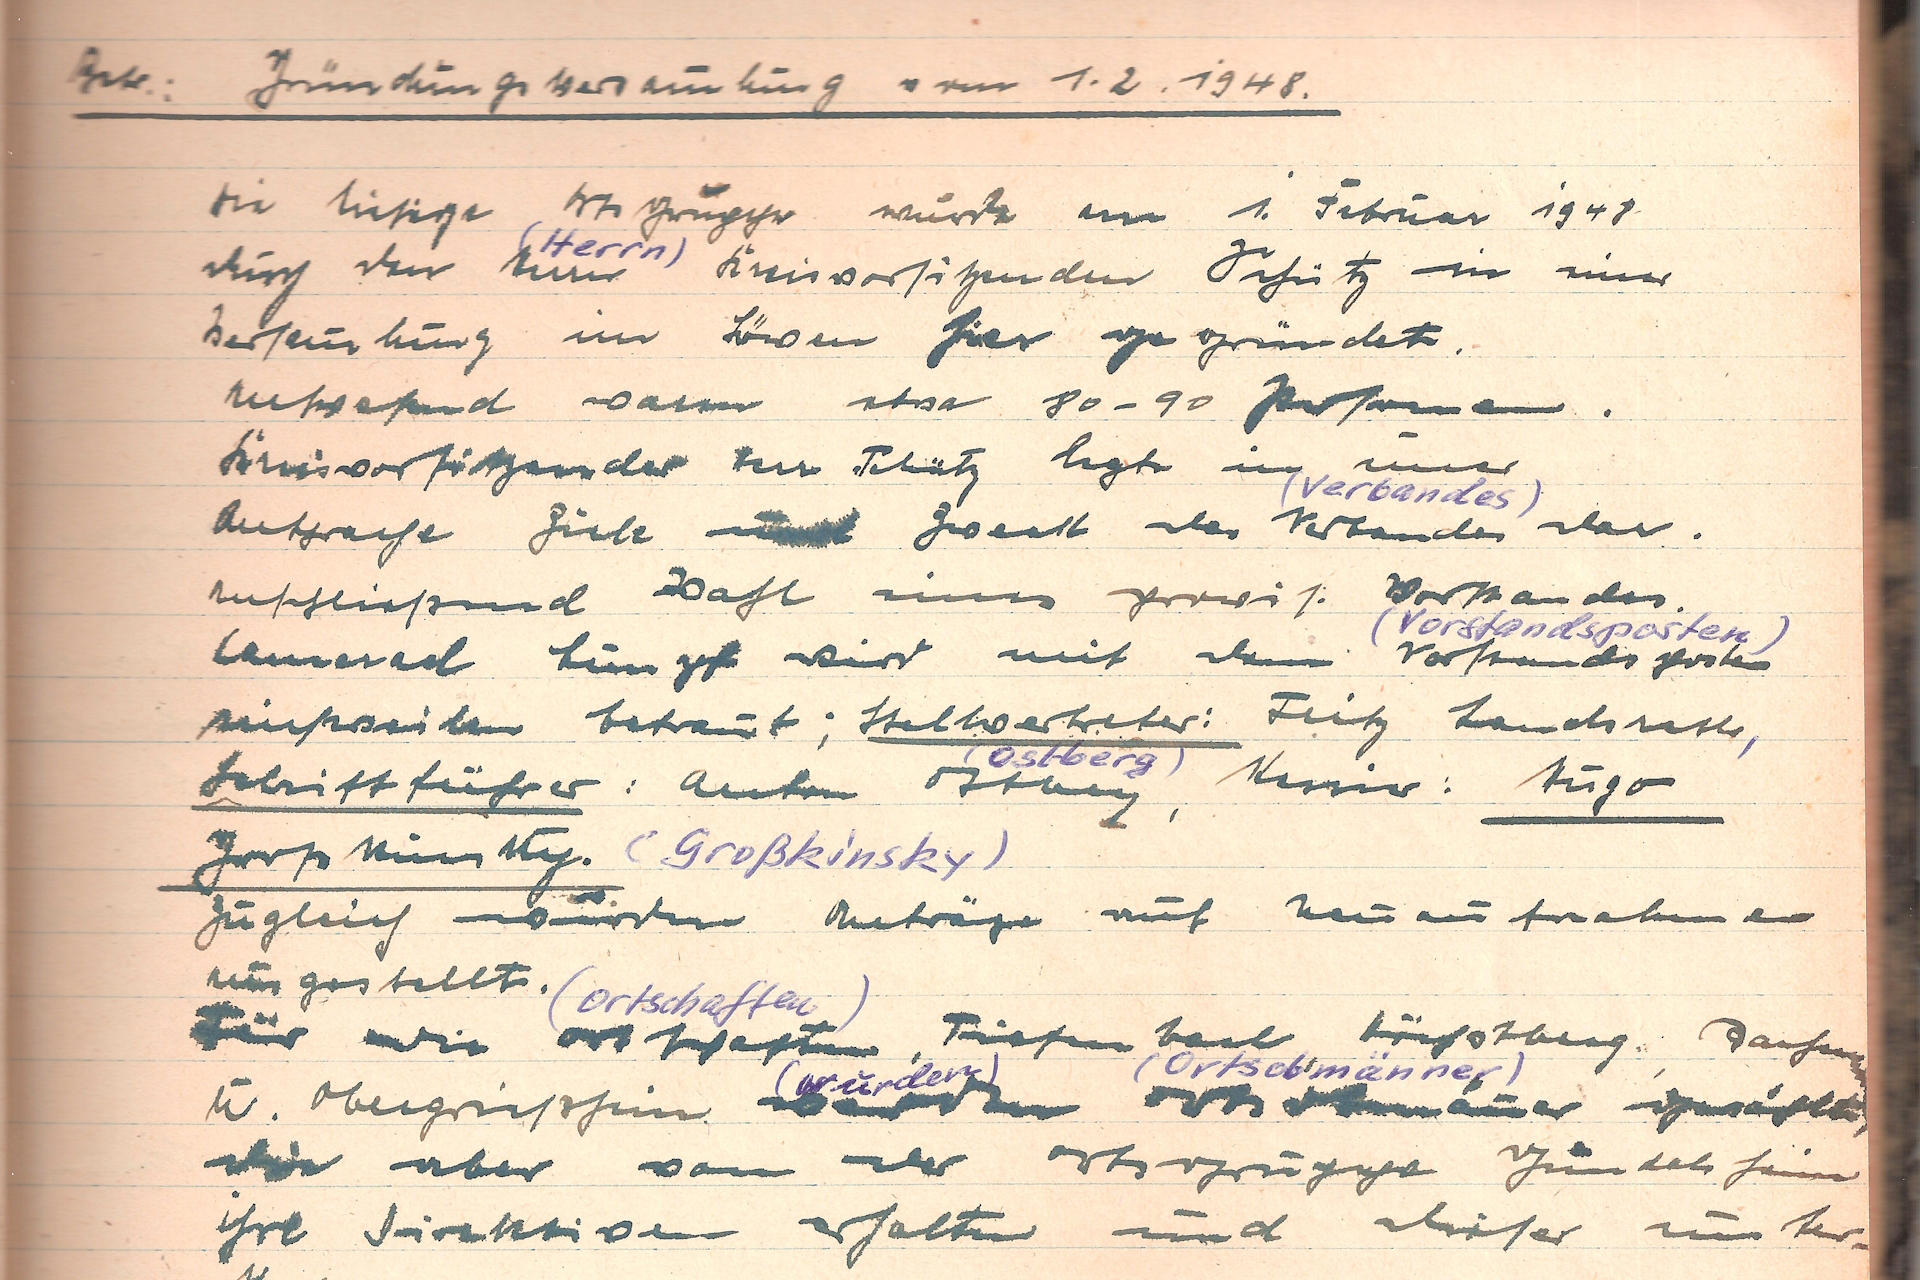 Betr.: Gründungsversammlung vom 1.2.1948.
Die hiesige Ortsgruppe wurde am 1. Februar 1948
(Herrn)
durch den Herrn Kreisvorsitzenden Schütz in einer
Versammlung im Löwen hier gegründet.
Anwesend waren etwa 80-90 Personen.
Kreisvorsitzender Herr Schütz legte in einer
(Verbandes)
Ansprache Ziele und Zweck des Verbandes dar.
Anschließend Wahl eines provis. Vorstandes.
(Vorstandsposten)
Kamerad wird mit dem Vorstandsposten
einstweilen betraut; Stellvertreter: Fritz
(Ostberg)
Schriftführer: Anton Ostberg, Kassier: Hugo
Großkinsky. (Großkinsky)
Zugleich wurden Anträge auf Neuaufnahmen
gestellt.
(Ortschaften)
Für die Ortschaften Tiefenbach,
(wurden) (Ortsobmänner)
u. Obergriesheim wurden Ortsobmänner gewählt,
die aber von der Ortsgruppe Gundelsheim
ihre Direktiven erhalten und dieser unter-